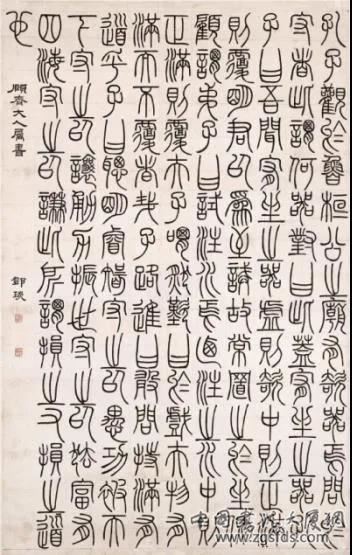 孔子觀於魯桓公之廟有欹器焉問於
守者此謂何器對曰此蓋宥坐之器孔
子曰吾聞宥坐之器虛則欹中則正滿
則覆明君以為至誡故常置之於坐側
顧謂弟子曰試注水焉迺注之水中則
正滿則覆夫子喟然歎曰於戲夫物有
滿而不覆者哉子路進曰敢問持滿有
道乎子曰聰明睿智守之以愚功被天
下守之以讓勇力振世守之以怯富有
四海守之以謙此所謂損之又損之道
也
顧齋大人屬書
鄧琰
中国书法大展网
www.zgsfds.com